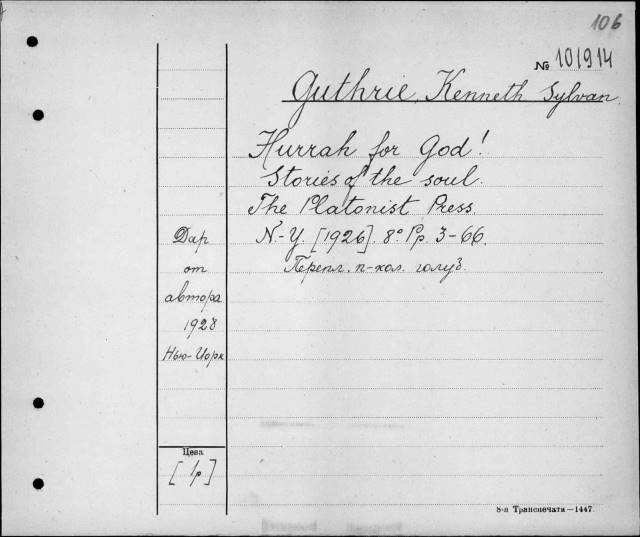 106
№ 101914
Guthrie, Kenneth Sylvan.
Hurrah for God!
Stories of the soul.
The Platonist Press.
N.-Y. [1926]. 8° Pp. 3-66.
Перепл. п-кол. голуб.
Дар
от
автора
1928
Нью-Иорк
Цена
[1р]
8-я Транспечати—1447.